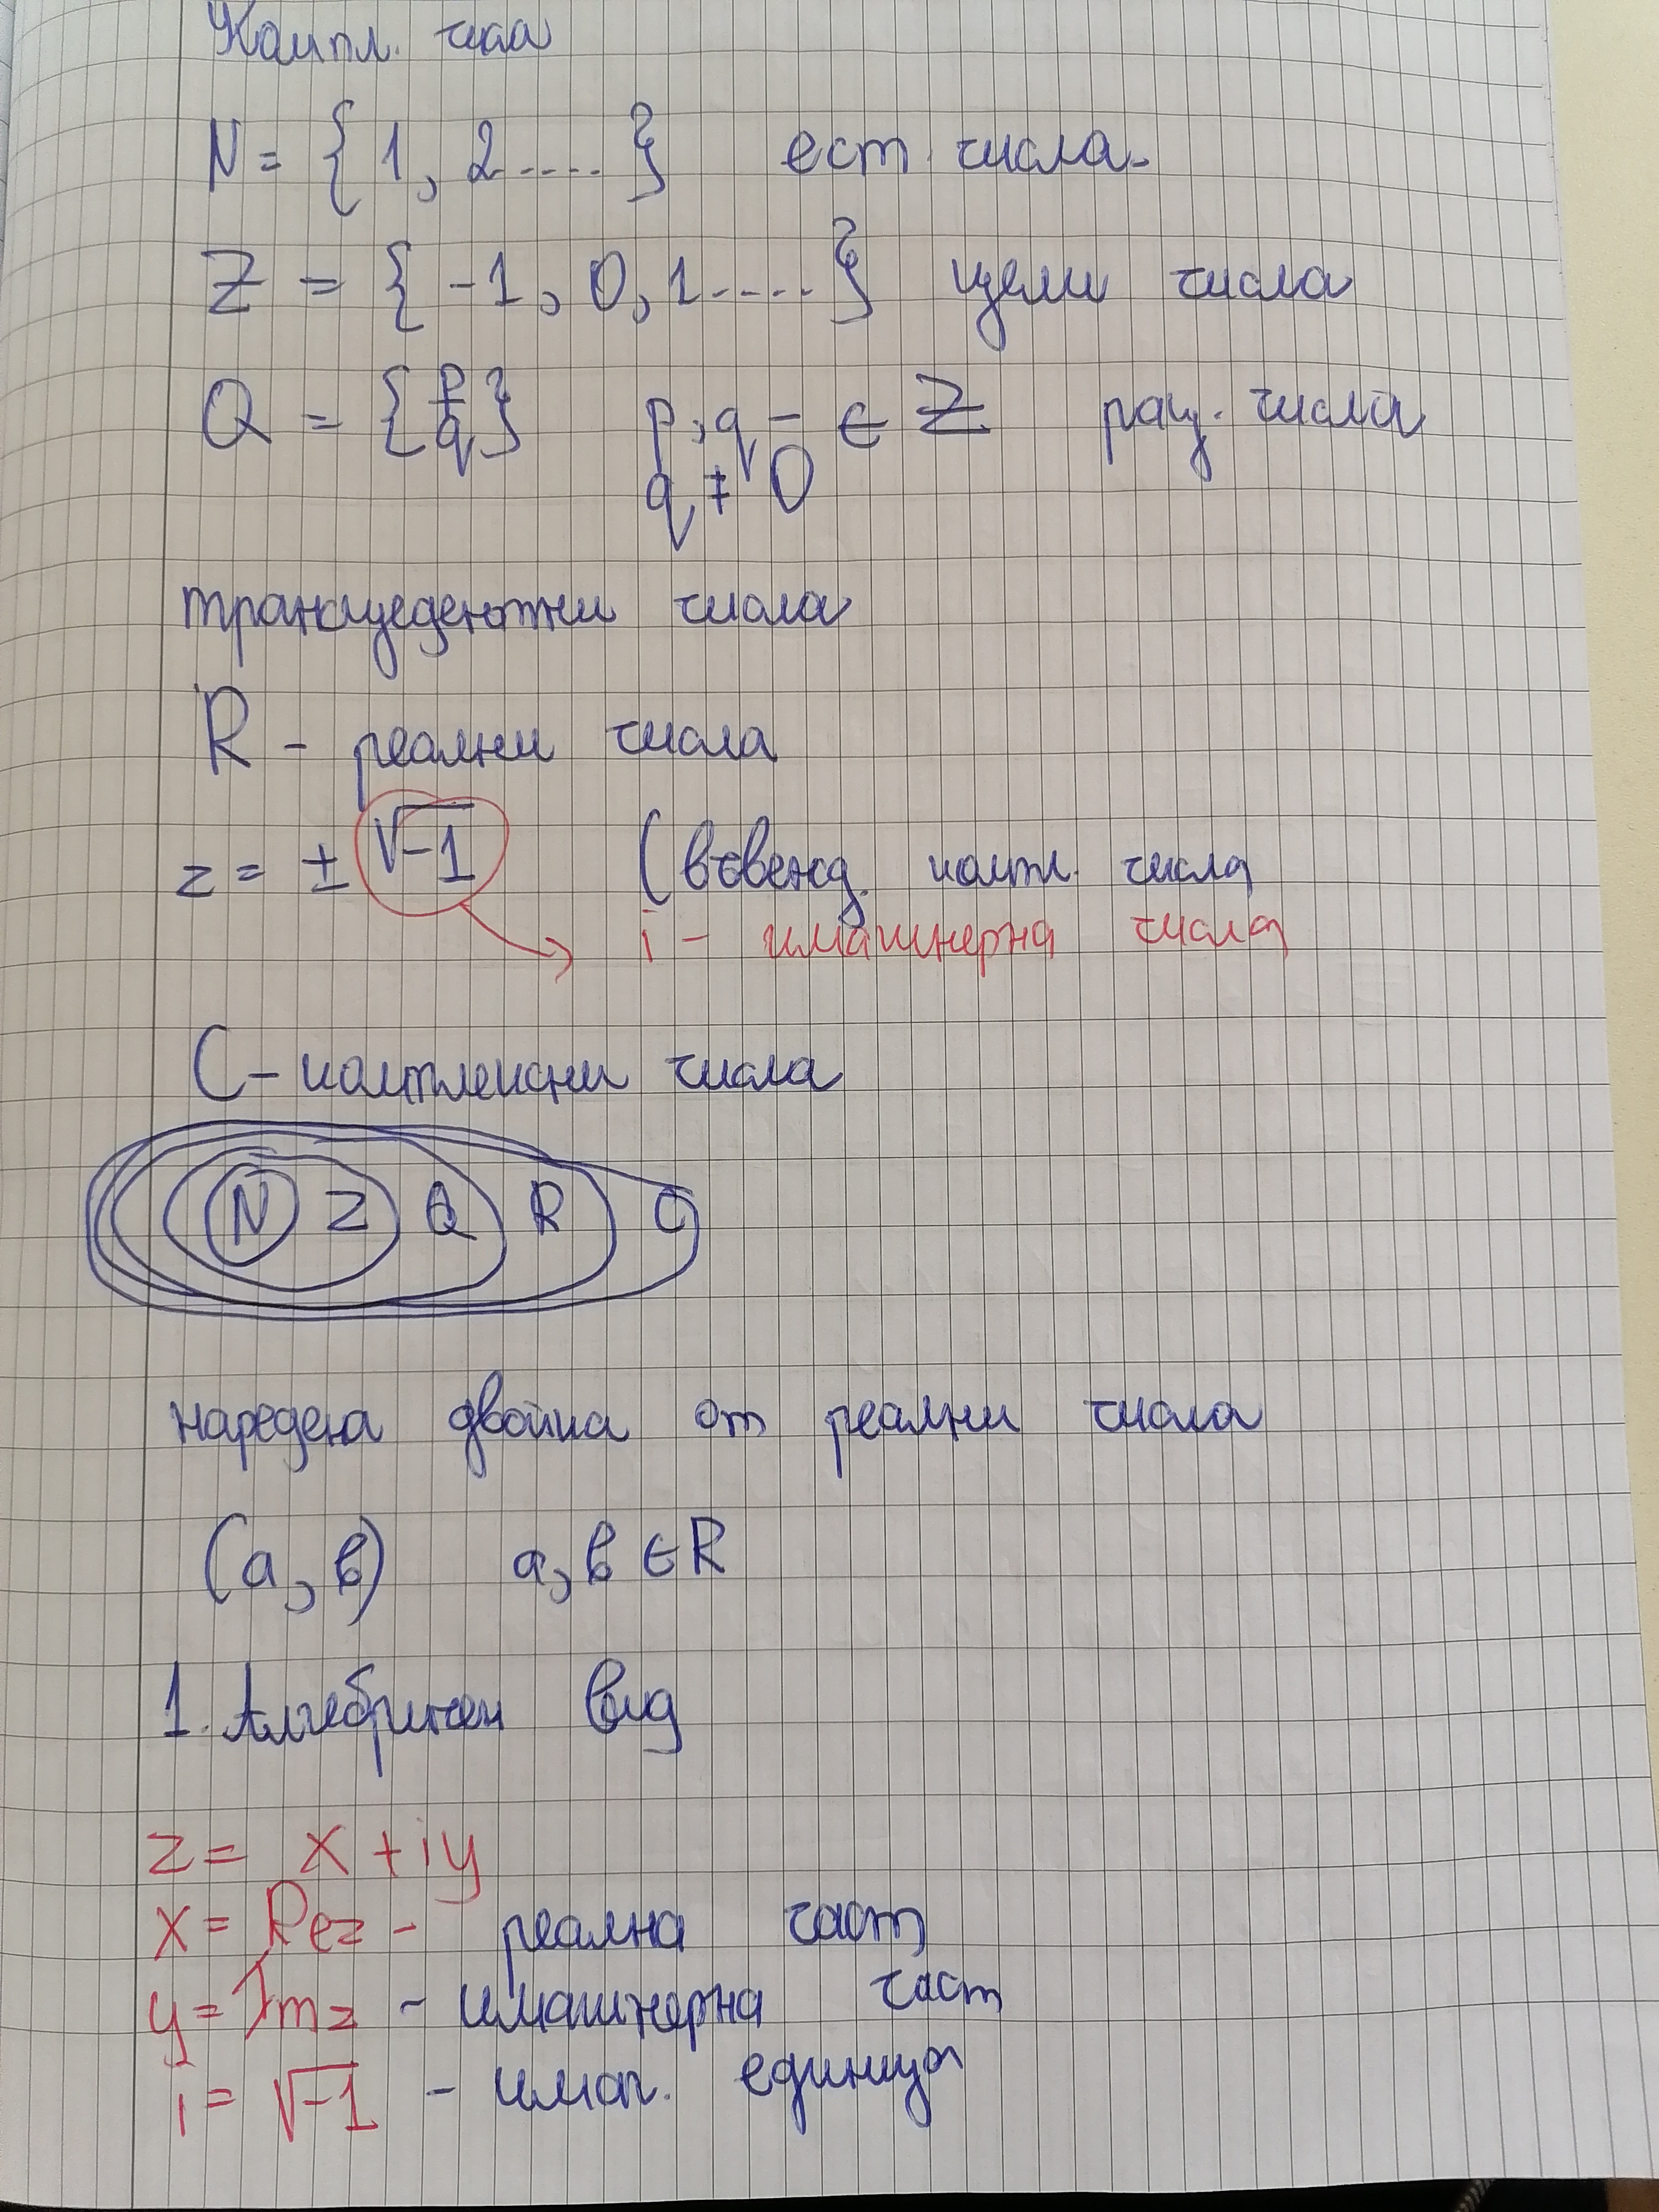 Компл. чиа
N = { 1, 2.... } ест. числа.
Z = { -1, 0, 1.... } цели числа
Q = { p/q } p, q - ∈ Z рац. числа
q ≠ 0
трансцедентни числа
R - реални числа
z = ± √-1 (въвежд. компл. числа
i - имагинерна числа
C - комплексни числа
N Z Q R C
наредена двойка от реални числа
(a, b) a, b ∈ R
1. Алгебричен вид
z = x + iy
x = Re z - реална част
y = Im z - имагинерна част
i = √-1 - имаг. единица